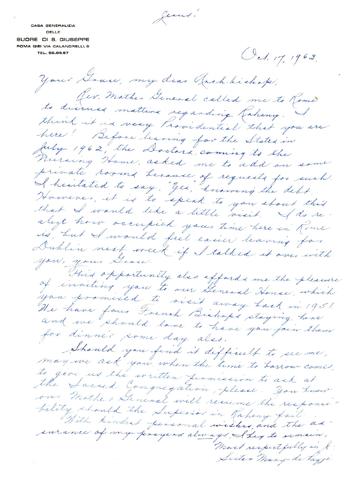 Jesus!
CASA GENERALIZIA
DELLE
SUORE DI S. GIUSEPPE
ROMA (919) VIA CALANDRELLI, 5
TEL.
Oct. 17, 1962.
Your Grace, my dear Archbishop,
Rev. Mother General called me to Rome
to discuss matters regarding Raheny. I
think it is very Providential that you are
here! Before leaving for the States in
July 1962, the Doctors coming to the
Nursing Home, asked me to add on some
private rooms because of requests for such
I hesitated to say, "Yes," knowing the debt
However, it is to speak to you about this
that I would like a little visit. I do re-
alize how occupied your time here in Rome
is, but I would feel easier leaving for
Dublin next week if I talked it over with
you, your Grace.
This opportunity also affords me the pleasure
of inviting you to our General House, which
you promised to visit away back in 195
We have four French Bishops staying here
and we should love to have you join them
for dinner some day also.
Should you find it difficult to see me,
may we ask you when the time to borrow comes,
to give us the written permission to ask at
the Sacred Congregation, please. You know
our Mother General will assume the responsi-
bility should the Superior in Raheny fail
With kindest personal wishes, and the as-
surance of my prayers always, I beg to remain,
Most respectfully in
Sister Mary